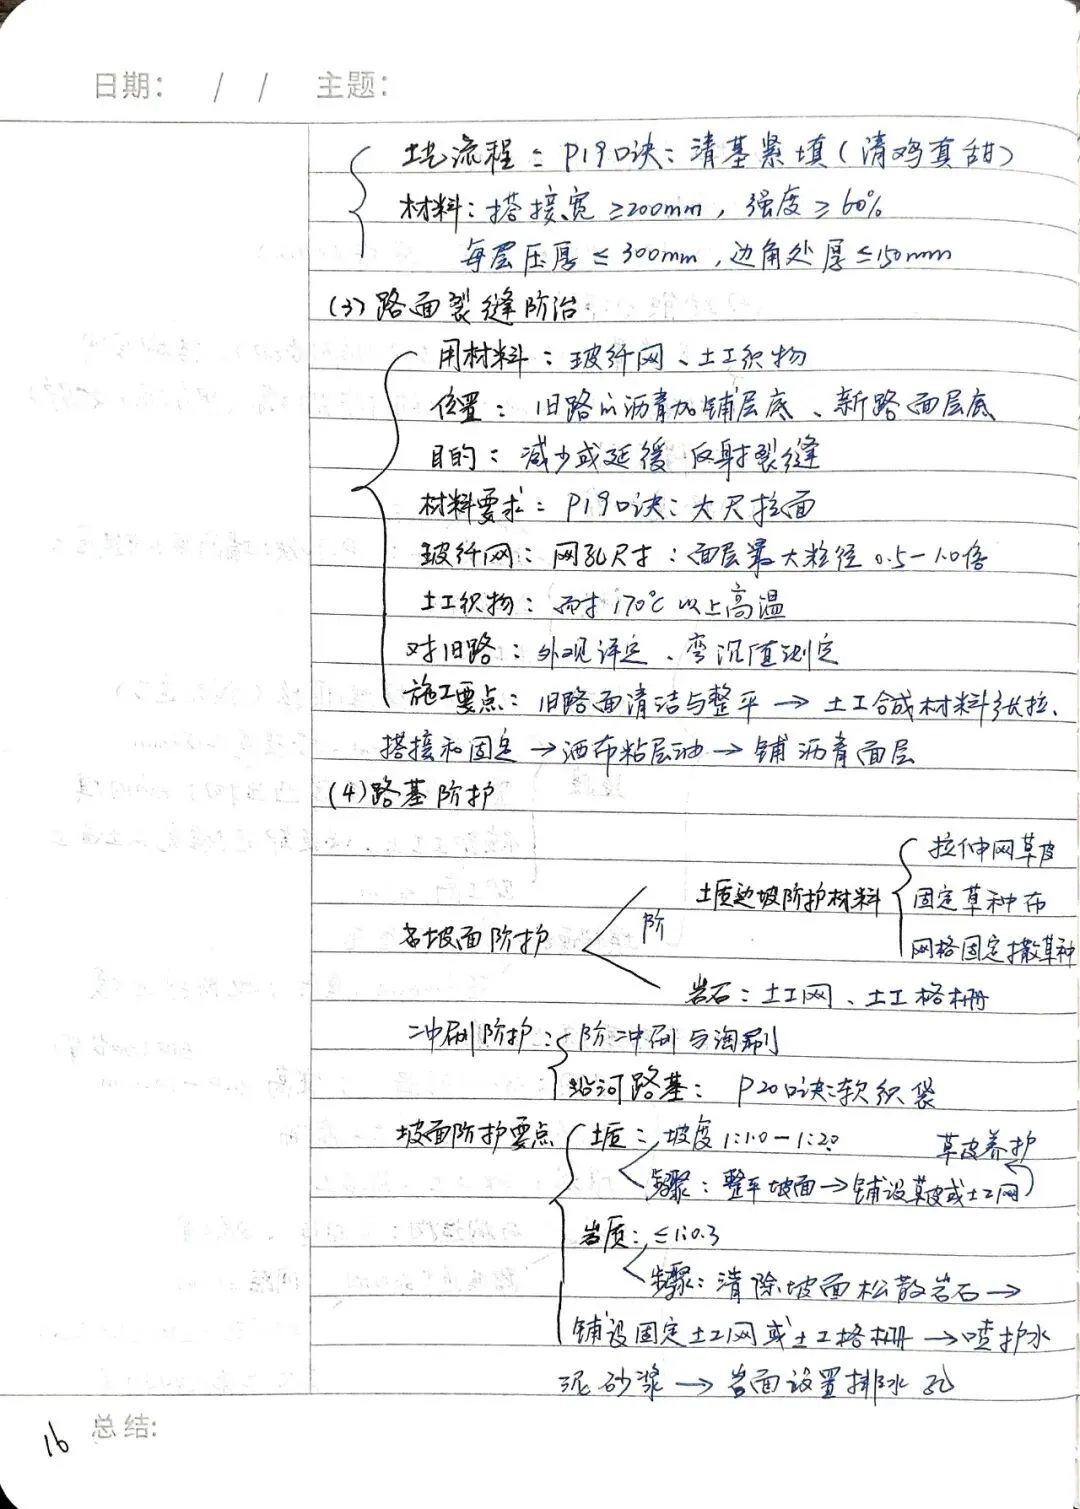 日期： / / 主题：
工艺流程：P19口诀：清基紧填（清鸡真甜）
材料：搭接宽≥200mm，强度≥60%
每层压厚≤300mm，边角处厚≤150mm
(3)路面裂缝防治
用材料：玻纤网、土工织物
位置：旧路的沥青加铺层底、新路面层底
目的：减少或延缓反射裂缝
材料要求：P19口诀：大尺拉面
玻纤网：网孔尺寸：面层最大粒径0.5-1.0倍
土工织物：耐170℃以上高温
对旧路：外观评定、弯沉值测定
施工要点：旧路面清洁与整平→土工合成材料张拉、
搭接和固定→洒布粘层油→铺沥青面层
(4)路基防护
拉伸网草皮
土质边坡防护材料 固定草种布
阶
网格固定撒草种
坡面阶护
岩石：土工网、土工格栅
冲刷阶护：阶冲刷与淘刷
沿河路基：P20口诀：软织袋
坡面阶护要点 土质：坡度1:1.0-1:2.0 草皮养护
步骤：整平坡面→铺设草皮或土工网
岩质：≤1:0.3
步骤：清除坡面松散岩石→
铺设固定土工网或土工格栅→喷护水
泥砂浆→岩面设置排水孔
16 总结: